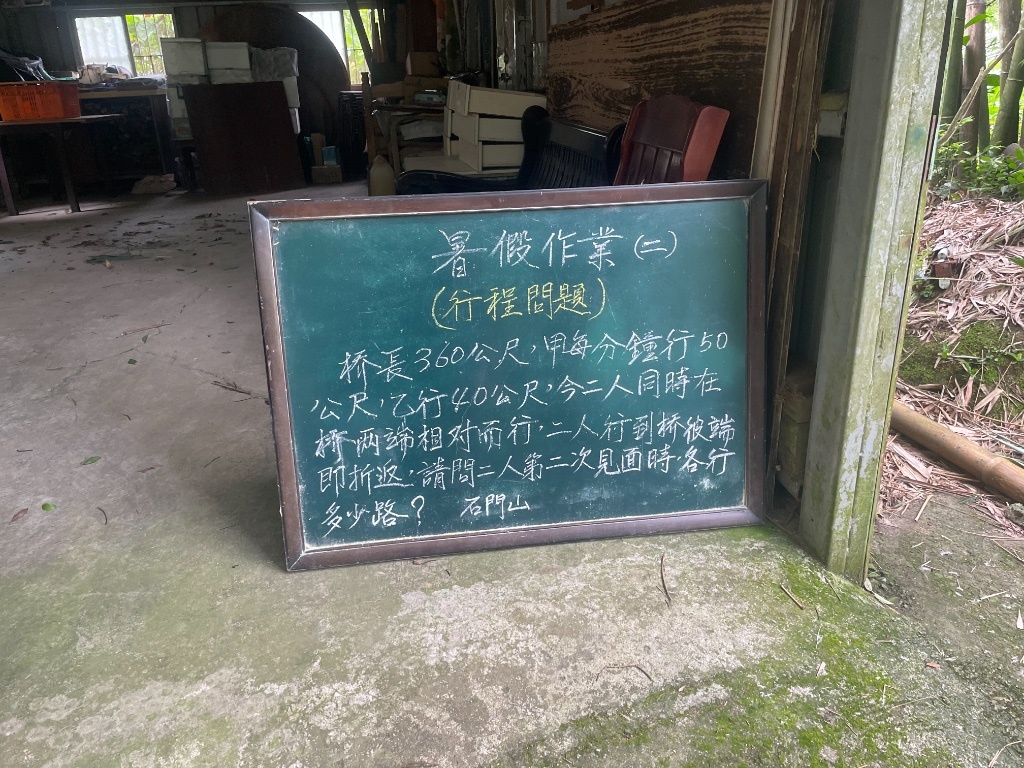 暑假作業(二)
(行程問題)
桥長360公尺,甲每分鐘行50
公尺,乙行40公尺,今二人同時在
橋两端相对而行,二人行到桥彼端
即折返,請問二人第二次見面時,各行
多少路? 石門山